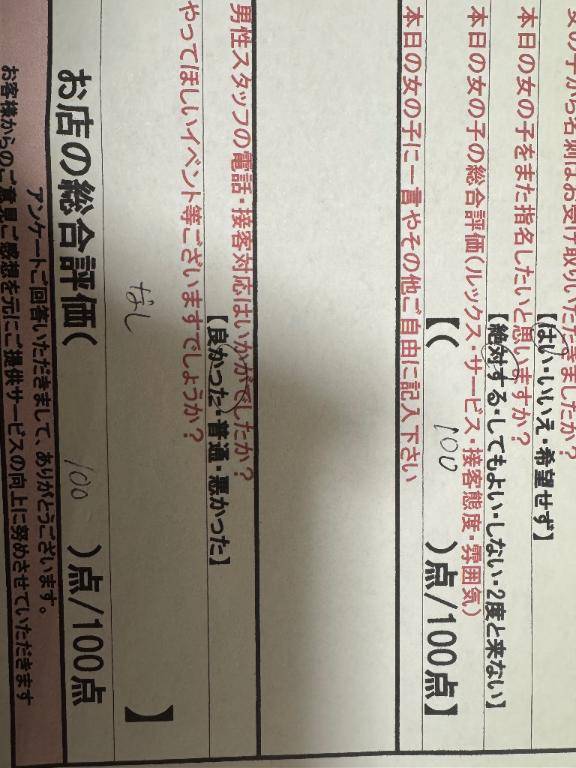 女の子から名刺はお受け取りいただきましたか？
【はい・いいえ・希望せず】
本日の女の子をまた指名したいと思いますか？
【絶対する・してもよい・しない・2度と来ない】
本日の女の子の総合評価（ルックス・サービス・接客態度・雰囲気）
【（ 100 ）点/100点】
本日の女の子に一言やその他ご自由に記入下さい
男性スタッフの電話・接客対応はいかがでしたか？
【良かった・普通・悪かった】
やってほしいイベント等ございますでしょうか？
なし 】
お店の総合評価（ 100 ）点/100点
アンケートご回答いただきまして、ありがとうございます。
お客様からのご意見ご感想を元にご提供サービスの向上に努めさせていただきます